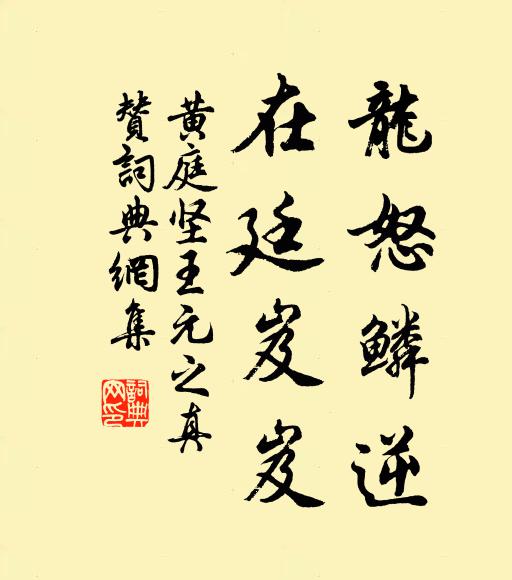 龍怒鱗逆
在廷岌岌
黄庭坚王元之真
赞詞典網集
詞典网印